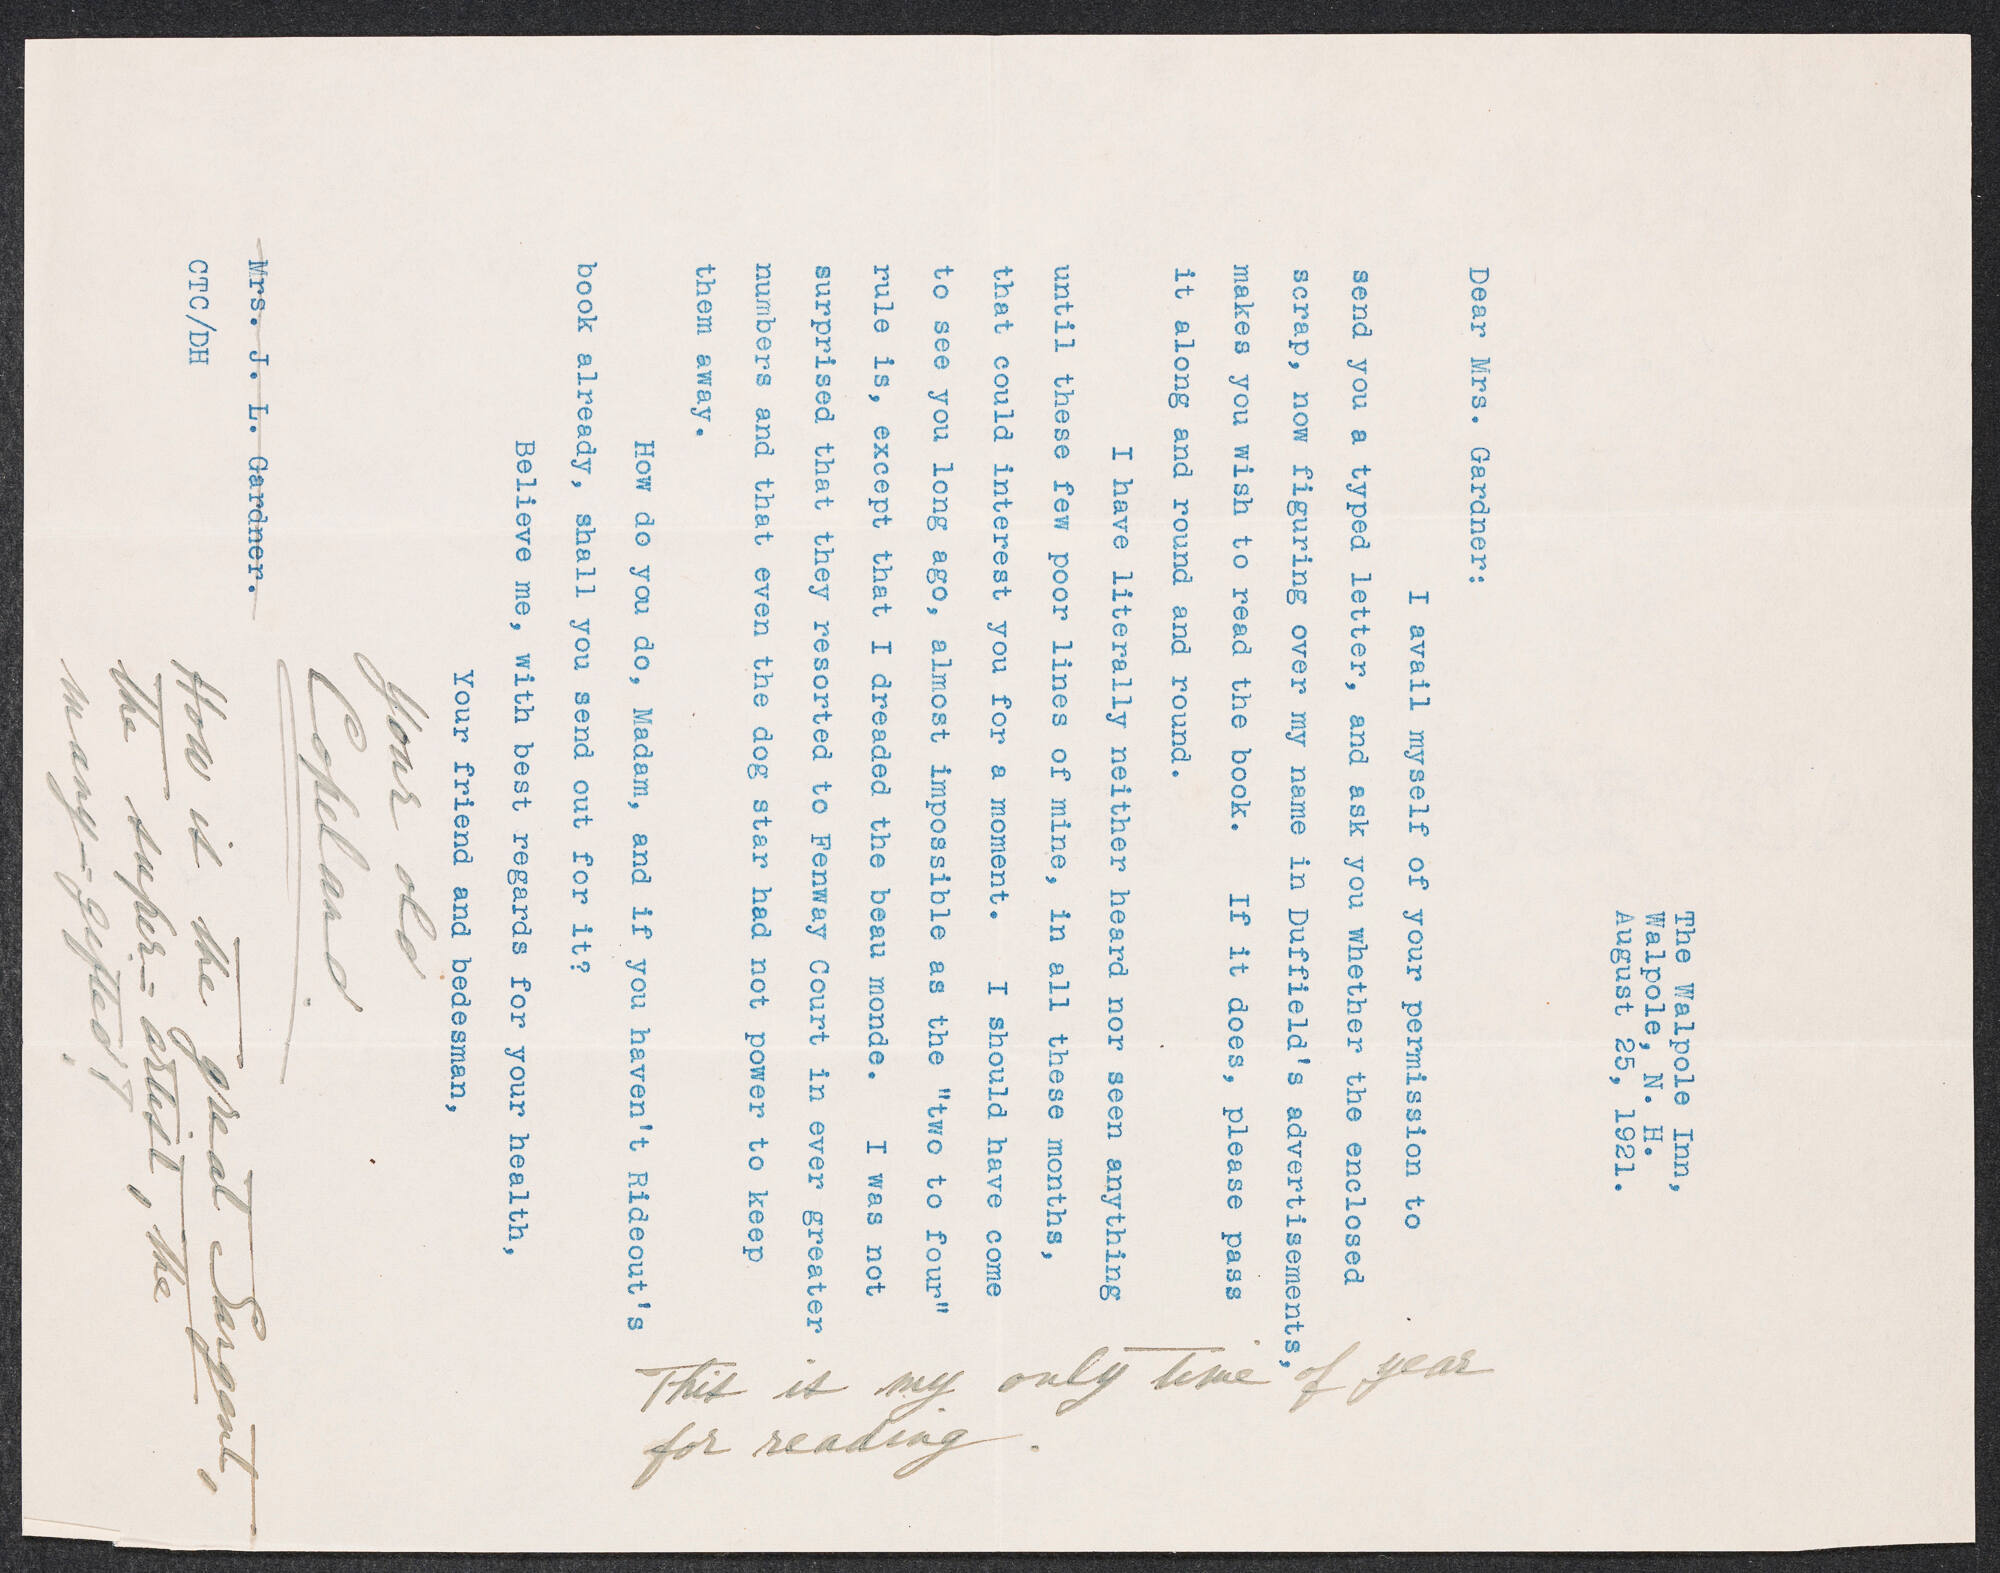 The Walpole Inn,
Walpole, N. H.
August 25, 1921.
Dear Mrs. Gardner:
I avail myself of your permission to
send you a typed letter, and ask you whether the enclosed
scrap, now figuring over my name in Duffield's advertisements,
makes you wish to read the book. If it does, please pass
it along and round and round.
I have literally neither heard nor seen anything
until these few poor lines of mine, in all these months,
that could interest you for a moment. I should have come
to see you long ago, almost impossible as the "two to four"
rule is, except that I dreaded the beau monde. I was not
surprised that they resorted to Fenway Court in ever greater
numbers and that even the dog star had not power to keep
them away.
How do you do, Madam, and if you haven't Rideout's
book already, shall you send out for it?
Believe me, with best regards for your health,
Your friend and bedesman,
Your old
Copeland.
Mrs. J. L. Gardner.
CTC/DH
How is the great Sargent,
the super-artist, the
many-gifted?
This is my only time of year
for reading.